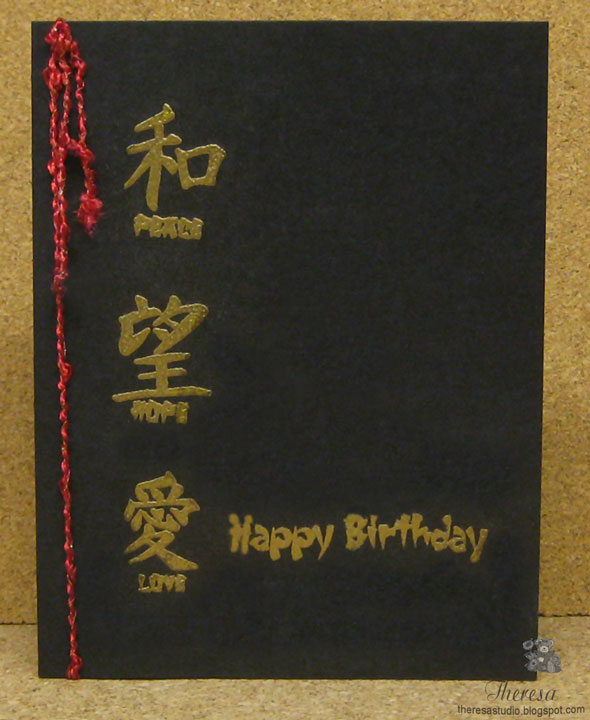 和
PEACE
望
HOPE
愛
LOVE
Happy Birthday
Theresa
theresastudio.blogspot.com